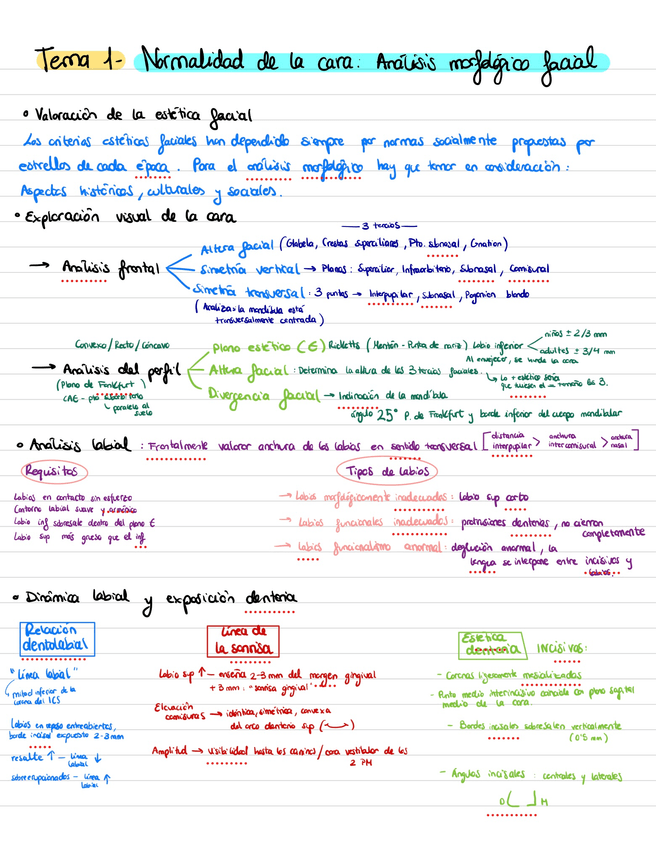 Tema 1- Normalidad de la cara: Análisis morfológico facial
• Valoración de la estética facial
Los criterios estéticos faciales han dependido siempre por normas socialmente propuestas por
estrellas de cada época. Para el análisis morfológico hay que tener en consideración:
Aspectos históricos, culturales y sociales.
• Exploración visual de la cara
— 3 tercios —
Altura facial (Glabela, Crestas superciliares, Pto. subnasal, Gnation)
→ Análisis frontal
Simetría vertical → Planos: Superciliar, Infraorbitario, Subnasal, Comisural
Simetría transversal: 3 puntos → Interpupilar, subnasal, Pogonion blando
(Analiza si la mandíbula está
transversalmente centrada)
Convexo/Recto/Cóncavo
Plano estético (E) Ricketts (Mentón - Punta de nariz) Labio inferior
niños ± 2/3 mm
adultos ± 3/4 mm
Al envejecer, se hunde la cara
→ Análisis del perfil
(Plano de Frankfurt)
CAE -
paralelo al
suelo
Altura facial: Determina la altura de los 3 tercios faciales.
↳ Lo + estético sería
que tuviesen el = tamaño los 3.
Divergencia facial → Inclinación de la mandíbula
ángulo 25° P. de Frankfurt y borde inferior del cuerpo mandibular
• Análisis labial: Frontalmente valorar anchura de los labios en sentido transversal [distancia interpupilar > anchura intercomisural > anchura nasal]
Requisitos
Labios en contacto sin esfuerzo
Contorno labial suave y armónico
Labio inf sobresale dentro del plano E
Labio sup más grueso que el inf
Tipos de labios
→ Labios morfológicamente inadecuados: labio sup corto
→ Labios funcionales inadecuados: protrusiones dentarias, no cierran
completamente
→ Labios funcionalismo anormal: deglución anormal, la
lengua se interpone entre incisivos y
labios.
• Dinámica labial y exposición dentaria
Relación
dentolabial
"Línea labial"
mitad inferior de la
corona del ICS
Labios en reposo entreabiertos,
borde incisal expuesto 2-3mm
resalte ↑ - línea labial ↓
sobreerupcionados - línea labial ↑
Línea de
la sonrisa
Labio sp ↑ - enseña 2-3 mm del margen gingival
+ 3 mm: "sonrisa gingival"
Elevación
comisuras → idéntica, simétrica, convexa
del arco dentario sup
Amplitud → visibilidad hasta los caninos/cara vestibular de los
2 PM
Estética
dentaria
INCISIVOS:
- Coronas ligeramente mesializadas
- Punto medio interincisivo coincide con plano sagital
medio de la cara.
- Bordes incisales sobresalen verticalmente
(0'5 mm)
- Ángulos incisales: centrales y laterales
D M